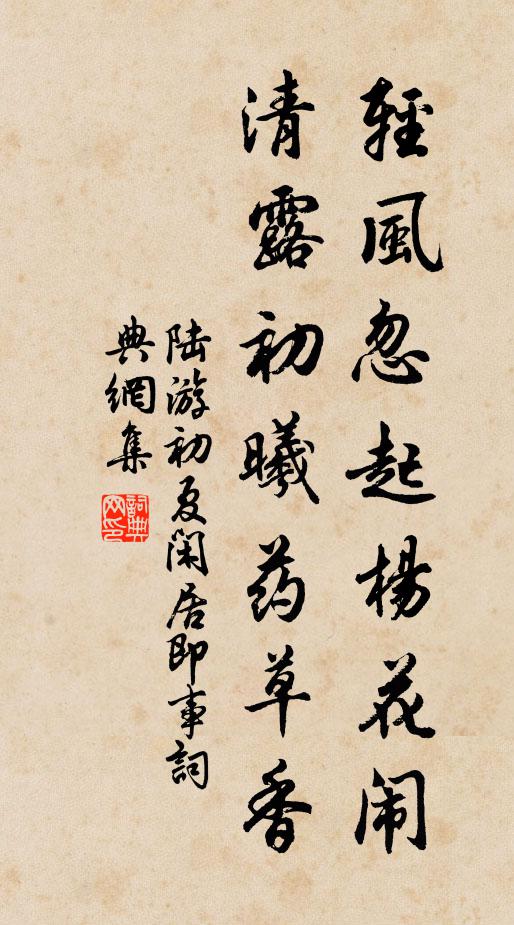 輕風忽起楊花闹
清露初曦药草香
陆游初夏闲居即事詞
典網集
詞典網印